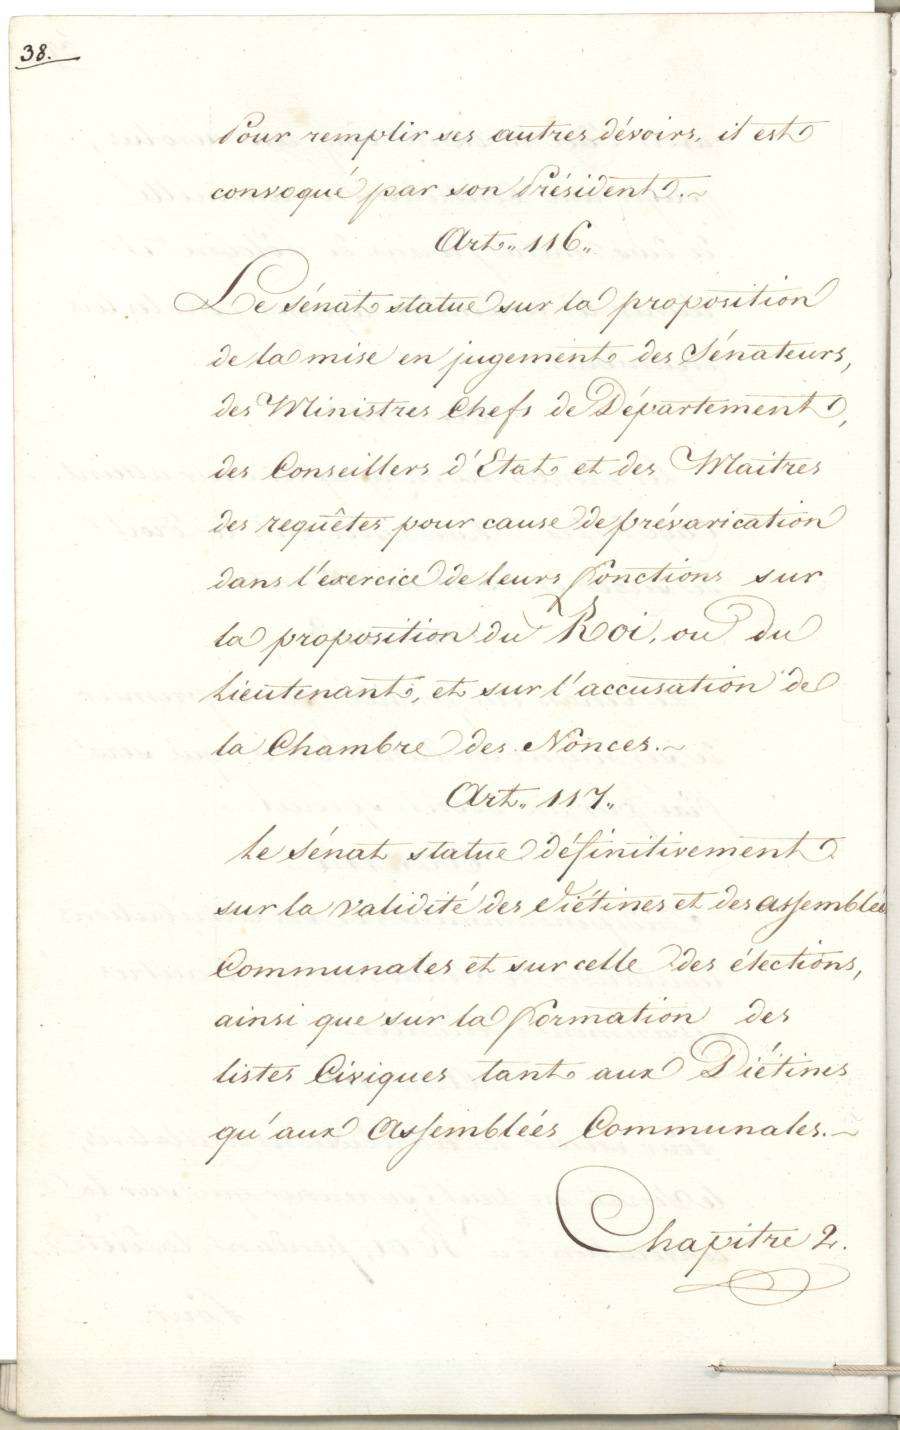 38.
Pour remplir ses autres dévoirs, il est
convoqué par son Président.~
Art.. 116..
Le sénat statue sur la proposition
de la mise en jugement des Sénateurs,
des Ministres Chefs de Département,
des Conseillers d'Etat et des Maitres
des requêtes pour cause de prévarication
dans l'exercice de leurs fonctions sur
la proposition du Roi, ou du
Lieutenant, et sur l'accusation de
la Chambre des Nonces.~
Art.. 117..
Le sénat statue définitivement
sur la validité des Diétines et des assemblées
Communales et sur celle des élections,
ainsi que sur la formation des
listes Civiques tant aux Diétines
qu'aux Assemblées Communales.~
Chapitre 2.